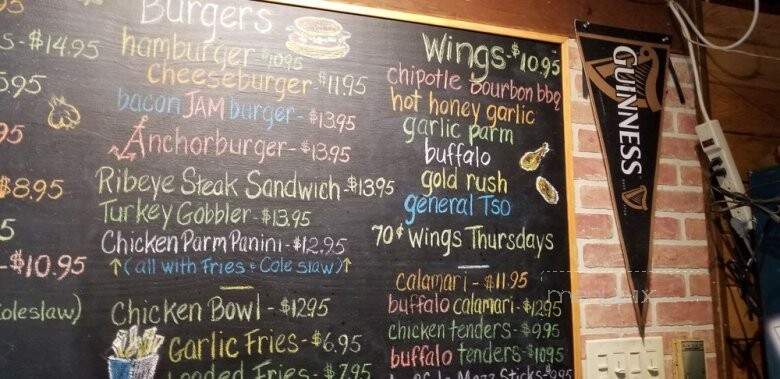 s-$14.95
5.95
95
$8.95
5
-$10.95
coleslaw)
Burgers
hamburger $10.95
cheeseburger-$11.95
bacon JAM burger-$13.95
Anchorburger-$13.95
Ribeye Steak Sandwich-$13.95
Turkey Gobbler-$13.95
Chicken Parm Panini-$12.95
(all with Fries + Cole slaw)
Chicken Bowl-$12.95
Garlic Fries-$6.95
Loaded Fries-$7.95
Wings-$10.95
chipotle Bourbon bbq
hot honey garlic
garlic parm
buffalo
gold rush
general Tso
70¢ wings Thursdays
calamari-$11.95
buffalo calamari-$12.95
chicken tenders-$9.95
buffalo tenders-$10.95
buffalo Mozz Sticks-$9.95
GUINNESS